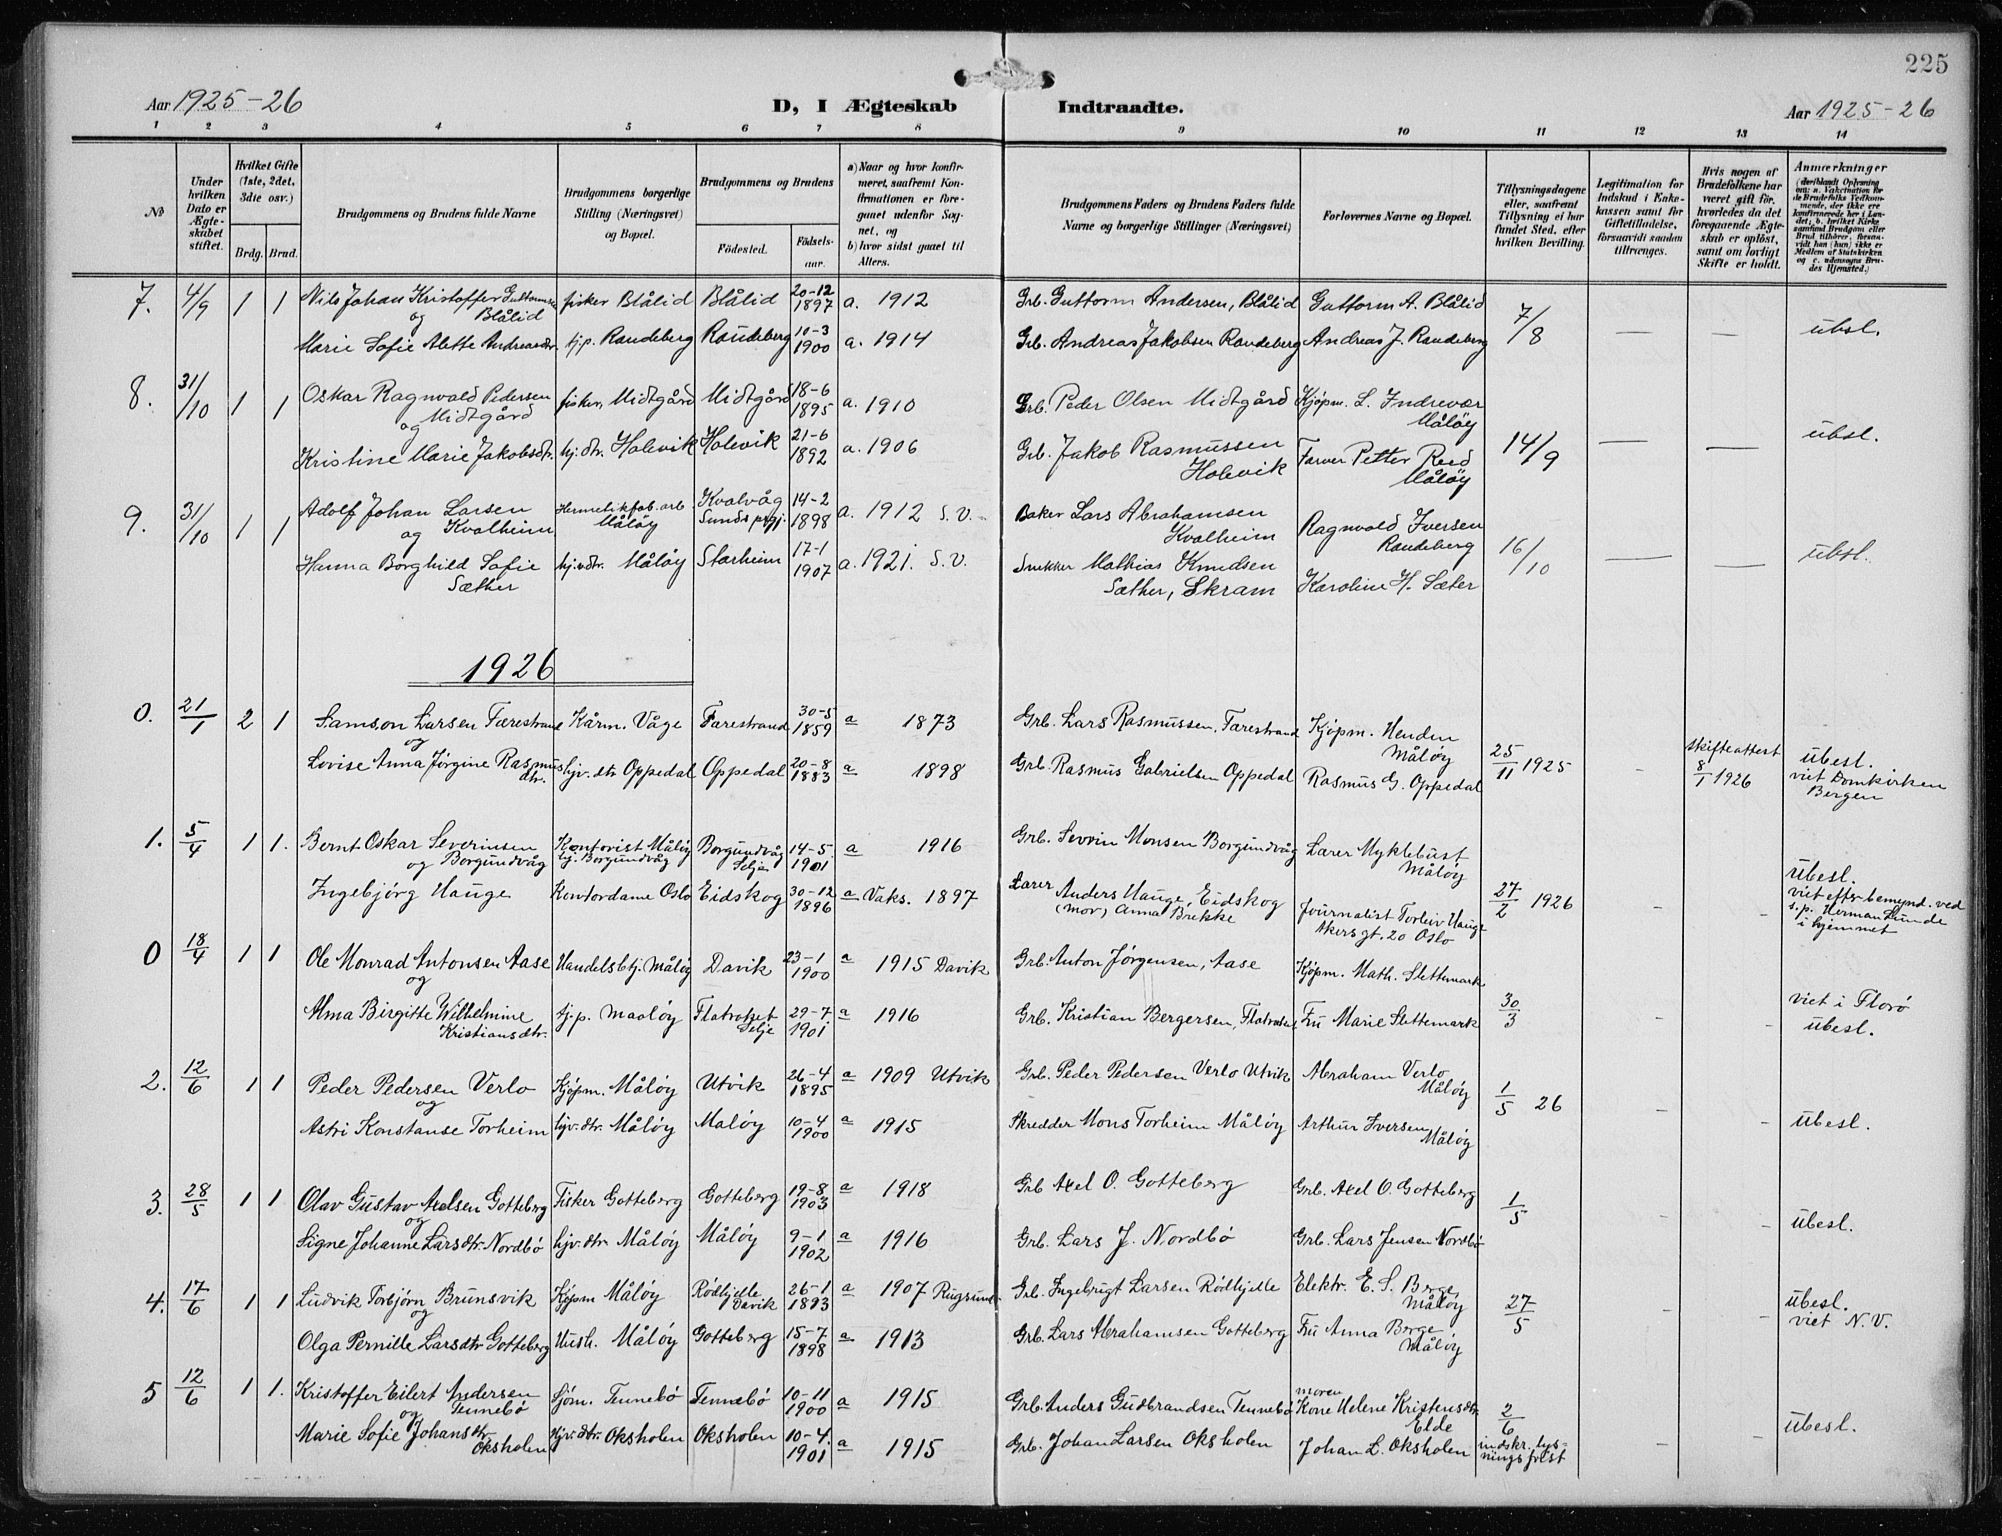 225
Aar 1925-26
D, I Ægteskab Indtraadte.
Aar 1925-26
1 2 3 4 5 6 7 8 9 10 11 12 13 14
No
Under hvilken Dato er Ægteskabet stiftet.
Hvilket Gifte (1ste, 2det, 3die osv.)
Brdg. Brud.
Brudgommens og Brudens fulde Navne
Brudgommens borgerlige Stilling (Næringsvei) og Bopæl.
Brudgommens og Brudens
Födested. Födsels-aar.
a) Naar og hvor konfirmeret, saafremt Konfirmationen er foregaaet udenfor Sognet, og
b) hvor sidst gaaet til Alters.
Brudgommens Faders og Brudens Faders fulde Navne og borgerlige Stillinger (Næringsvei)
Forlovernes Navne og Bopæl.
Tillysningsdagene eller, saafremt Tillysning ei har fundet Sted, efter hvilken Bevilling.
Legitimation for Indskud i Enkekassen samt for Giftetilladelse, forsaavidt saadan tiltrænges.
Hvis nogen af Brudefolkene har været gift för, hvorledes da det foregaaende Ægteskab er oplöst, samt om lovligt Skifte er holdt.
Anmærkninger
7. 4/9 1 1 Nils Johan Kristoffer Guttormsen Blålid fisker Blålid Blålid 20-12 1897 a. 1912 Grb. Guttorm Andersen, Blålid Guttorm A. Blålid 7/8 — — ubsl.
og
Marie Sofie Alette Andreasdtr. hj.p. Raudeberg Raudeberg 10-3 1900 a. 1914 Grb. Andreas Jakobsen Raudeberg Andreas J. Raudeberg
8. 31/10 1 1 Oskar Ragnvald Pedersen Midtgård fisker, Midtgård Midtgård 18-6 1895 a. 1910 Grb. Peder Olsen Midtgård Kjøpm. L. Indrevær Måløy 14/9 — — ubsl.
og
Kristine Marie Jakobsdtr. hj.dtr. Holevik Holevik 21-6 1892 a. 1906 Grb. Jakob Rasmussen Holevik Farver Petter Reed Måløy
9. 31/10 1 1 Adolf Johan Larsen Kvalheim Hermetikfab.arb Måløy Kvalvåg Sunds prgj. 14-2 1898 a. 1912 S.V. Baker Lars Abrahamsen Kvalheim Ragnvald Iversen Raudeberg 16/10 — — ubsl.
og
Hanna Borghild Sofie Sæther hj.v.dtr. Måløy Starheim 17-1 1907 a. 1921. S.V. Snekker Mathias Knudsen Sæther, Skram Karoline H. Sæter
1926
0. 21/1 2 1 Samson Larsen Færestrand Kårm. Våge Farestrand 30-5 1859 a 1873 Grb. Lars Rasmussen, Farestrand Kjøpm. Henden Måløy 25/11 1925 - skifteattest 8/1 1926 übesl. viet Domkirken Bergen
og
Lovise Anna Jørgine Rasmusdtr. hjv. dtr Oppedal Oppedal 20-8 1883 a 1898 Grb. Rasmus Gabrielsen Oppedal Rasmus G. Oppedal
1. 5/4 1 1. Bernt Oskar Severinsen Borgundvåg Kontorist Måløy hj. Borgundvåg Borgundvåg Selje 14-5 1901 a 1916 Grb. Sevrin Monsen Borgundvåg Lærer Myklebust Måløy 27/2 1926 - - übesl. viet efter bemynd. ved s.p. Herman Lunde i hjemmet
og
Ingebjørg Hauge Kontordame Oslo Eidskog 30-12 1896 a Vaks. 1897 Lærer Anders Hauge, Eidskog (mor) Anna Brekke Journalist Torleiv Hauge Akersgt. 20 Oslo
0 18/4 1 1 Ole Monrad Antonsen Aase Handelsbtj. Måløy Davik 23-1 1900 a 1915 Davik Grb. Anton Jørgensen, Aase Kjøpm. Math. Slettemark 30/3 - - viet i Florø übesl.
og
Alma Birgitte Wilhelmine Kristiansdtr. tj.p. Maaløy Flatraket Selje 29-7 1901 a 1916 Grb. Kristian Bergersen, Flatraket Fru Marie Slettemark
2. 12/6 1 1 Peder Pedersen Verlo Kjøpm. Måløy Utvik 26-4 1895 a 1909 Utvik Grb. Peder Pedersen Verlo Utvik Abraham Verlo Måløy 1/5 26 - - übesl.
og
Astri Konstanse Torheim hjv.dtr. Måløy Måløy 10-4 1900 a 1915 Skredder Mons Torheim Måløy Arthur Iversen Måløy
3. 28/5 1 1 Olav Gustav Axelsen Gotteberg Fisker Gotteberg Gotteberg 19-8 1903 a 1918 Grb Axel O. Gotteberg Grb. Axel O. Gotteberg 1/5 - übesl.
og
Signe Johanne Larsdtr. Nordbø hjv.dtr Måløy Måløy 9-1 1902 a 1916 Grb. Lars J. Nordbø Grb. Lars Jensen Nordbø
4. 17/6 1 1 Ludvik Torbjørn Brunsvik Kjøpm Måløy Rödhjelle Davik 26-1 1893 a 1907 Rugsund Grb. Ingebrigt Larsen Rödhjelle Elektr. E. S. Berge, Måløy 27/5 - - übesl. viet N.V.
og
Olga Pernille Larsdtr Gotteberg Hush. Måløy Gotteberg 15-7 1898 a 1913 Grb. Lars Abrahamsen Gotteberg Fru Anna Berge Måløy
5 12/6 1 1. Kristoffer Eilert Andersen Tennebø Sjøm. Tennebø Tennebø 10-11 1900 a 1915 Grb. Anders Gudbrandsen Tennebø moren Kone Helene Kristensdtr. Elde 2/6 indskr. lysningsfrist - - übesl.
og
Marie Sofie Johansdtr. Oksholen Hjv.dtr. Oksholen Oksholen 10-4 1901 a 1915 Grb. Johan Larsen Oksholen Johan L. Oksholen